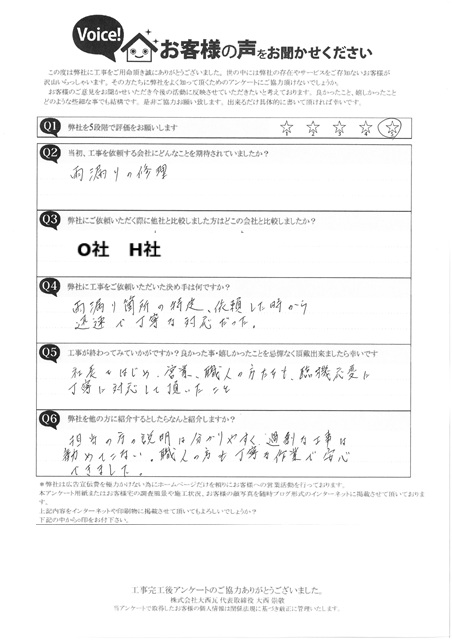 Voice!
お客様の声をお聞かせください
この度は弊社に工事をご用命頂き誠にありがとうございました。世の中には弊社の存在やサービスをご存知ないお客様が
沢山いらっしゃいます。その方たちに弊社をよく知って頂くためのアンケートにご協力頂けないでしょうか。
お客様のご意見をお聞かせいただき今後の活動に反映させていただきたいと考えております。良かったこと、嬉しかったこと
どのような些細な事でも結構です。是非ご協力お願い致します。出来るだけ具体的に書いて頂ければ幸いです。
Q1 弊社を5段階で評価をお願いします
Q2 当初、工事を依頼する会社にどんなことを期待されていましたか?
雨漏りの修理
Q3 弊社にご依頼いただく際に他社と比較しました方はどこの会社と比較しましたか?
O社 H社
Q4 弊社に工事をご依頼いただいた決め手は何ですか?
雨漏り箇所の特定、依頼した時から
迅速で丁寧な対応だった。
Q5 工事が終わってみていかがですか?良かった事・嬉しかったことを忌憚なく頂戴出来ましたら幸いです
社長をはじめ、営業、職人の方たちも、臨機応変に
丁寧に対応して頂いたこと
Q6 弊社を他の方に紹介するとしたらなんと紹介しますか?
担当の方の説明は分かりやすく、過剰な工事は
勧めてこない。職人の方も丁寧な作業で安心
できました。
*弊社は広告宣伝費を極力かけない為にホームページだけを頼りにお客様への営業活動を行っております。
本アンケート用紙またはお客様宅の調査風景や施工状況、お客様の顔写真を随時ブログ形式のインターネットに掲載させて頂いております。
上記内容をインターネットや印刷物に掲載させて頂いてもよろしいでしょうか?
下記の中から○印をお付け下さい。
工事完工後アンケートのご協力ありがとうございました。
株式会社大西瓦 代表取締役 大西 崇敬
当アンケートで取得したお客様の個人情報は関係法規に基づき厳正に管理いたします。